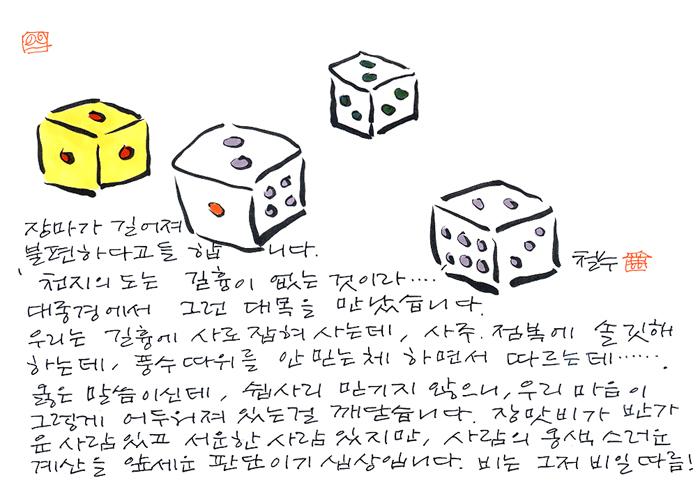 장마가 길어져
불편하다고들 합니다.
'천지의 도는 길흉이 없는 것이라····
대종경에서 그런 대목을 만났습니다.
철수
우리는 길흉에 사로잡혀 사는데, 사주·점복에 솔깃해
하는데, 풍수 따위를 안 믿는 체 하면서 따르는데······.
옳은 말씀이신데, 쉽사리 믿기지 않으니, 우리 마음이
그렇게 어두워져 있는 걸 깨닫습니다. 장맛비가 반가
운 사람 있고 서운한 사람 있지만, 사람의 옹색스러운
계산을 앞세운 판단이기 십상입니다. 비는 그저 비일 따름!